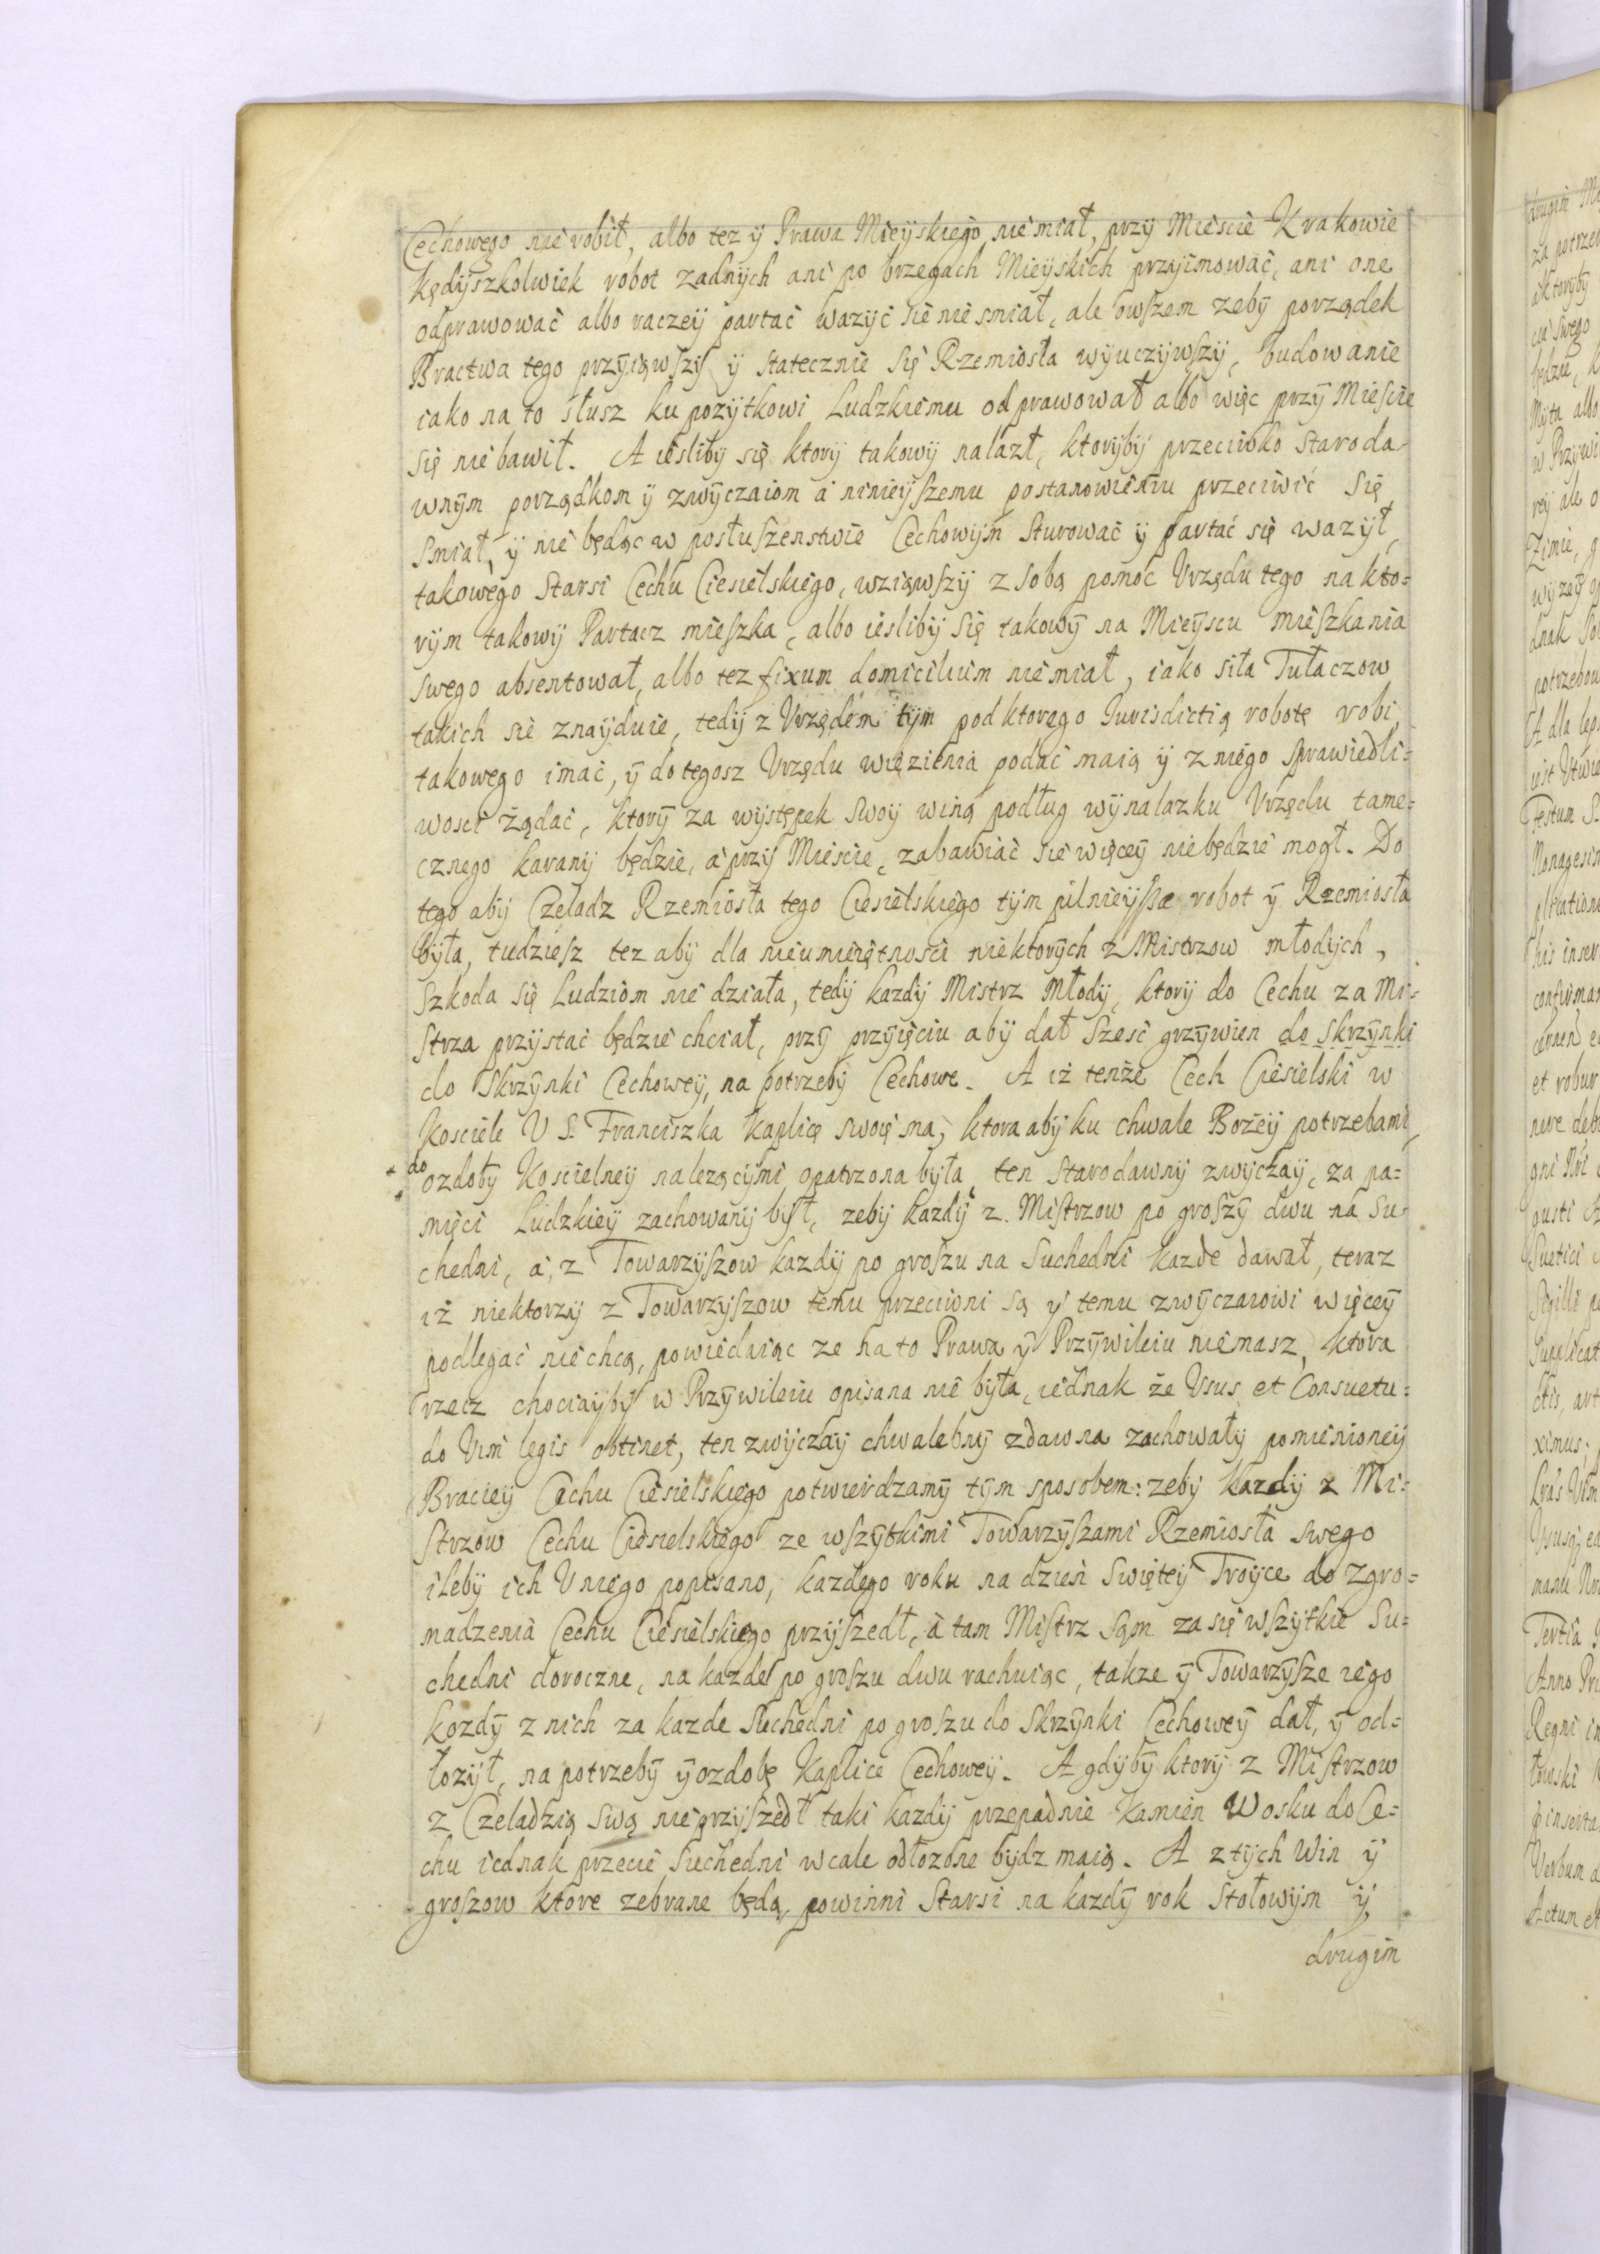 Cechowego nie robił, albo tez ÿ Prawa Mieÿskiego nie miał, przÿ Miescie Krakowie
kędÿszkolwiek robot zadnÿch ani po brzegach Mieÿskich przÿimować, ani one
odprawować albo raczeÿ partać wazÿć sie nie smiał, ale owszem zebÿ porządek
Bractwa tego przÿiąwszÿ ÿ statecznie się Rzemiosła wÿuczÿwszÿ, budowanie
iako na to słusz ku pozÿtkowi Ludzkiemu odprawował albo więc przÿ Miescie
się nie bawił. A iesliby się ktorÿ takowÿ nalazł, ktorÿbÿ przeciwko staroda-
wnÿm porządkom ÿ zwÿczaiom a ninieÿszemu postanowieniu przeciwić się
smiał, ÿ nie będąc w posłuszenstwie Cechowÿm sturować ÿ partać się wazÿł,
takowego Starsi Cechu Ciesielskiego, wziąwszÿ z sobą pomoc Vrzędu tego na kto=
rÿm takowÿ Partacz mieszka, albo ieslibÿ się takowÿ na Mieÿscu mieszkania
swego absentował, albo tez fixum domicilium nie miał, iako siła Tułaczow
takich sie znaÿduie, tedÿ z Vrzędem tÿm pod ktorego Jurisdictią robotę robi
takowego imać, ÿ do tegosz Vrzędu więzienia podać maią ÿ z niego sprawiedli=
wosci żądać, ktorÿ za wÿstępek swoÿ winą podług wÿnalazku Vrzędu tame=
cznego karanÿ będzie, a przÿ Miescie, zabawiać sie więceÿ nie będzie mogł. Do
tego abÿ Czeladz Rzemiosła tego Ciesielskiego tÿm pilnieÿsza robot ÿ Rzemiosła
była, tudziesz tez abÿ dla nieumieiętnosci niektorÿch z Mistrzow młodÿch,
szkoda się Ludziom nie działa, tedÿ kazdÿ Mistrz Młodÿ, ktorÿ do Cechu za Mi=
strza przÿstać będzie chciał, przÿ przÿięciu abÿ dał szesc grzÿwien do skrzÿnki
do Skrzÿnki Cechoweÿ, na potrzebÿ Cechowe. A iż tenże Cech Ciesielski w
Kosciele V S. Franciszka Kaplicę swoię ma, ktora abÿ ku chwale Bożeÿ potrzebami,
do
ozdobÿ Koscielneÿ nalezącÿmi opatrzona była, ten starodawnÿ zwÿczaÿ, za pa=
mięci Ludzkieÿ zachowanÿ bÿł, zebÿ kazdÿ z Mistrzow po groszÿ dwu na Su-
chedni, a z Towarzÿszow kazdÿ po groszu na Suchedni kazde dawał, teraz
iż niektorzÿ z Towarzÿszow temu przeciwni są ÿ temu zwÿczaiowi więceÿ
podlegać nie chcą, powiedaiąc ze na to Prawa ÿ Przÿwileiu niemasz, ktora
rzecz chociaÿbÿ w Przÿwileiu opisana nie była, iednak że Vsus et Consuetu=
do Vim legis obtinet, ten zwÿczaÿ chwalebnÿ zdawna zachowałÿ pomienioneÿ
Bracieÿ Cechu Ciesielskiego potwierdzamÿ tÿm sposobem: zebÿ kazdÿ z Mi=
strzow Cechu Ciesielskiego ze wszÿtkimi Towarzÿszami Rzemiosła swego
ilebÿ ich V niego popisano, kazdego roku na dzień Swięteÿ Troÿce do zgro=
madzenia Cechu Ciesielskiego przÿszedł, a tam Mistrz sąm za się wszÿtkie Su=
chedni doroczne, na kazde po groszu dwu rachuiąc, takze ÿ Towarzÿsze iego
kozdÿ z nich za kazde Suchedni po groszu do Skrzÿnki Cechoweÿ dał, ÿ od=
łozÿł, na potrzebÿ ÿ ozdobę Kaplice Cechoweÿ. A gdÿbÿ ktorÿ z Mistrzow
z Czeladzią swą nie przÿszedł taki kazdÿ przepadnie kamien Wosku do Ce=
chu iednak przecie Suchedni wcale odłozone bÿdz maią. A z tÿch Win ÿ
groszow ktore zebrane będą, powinni Starsi na kazdÿ rok Stołowÿm ÿ
drugim